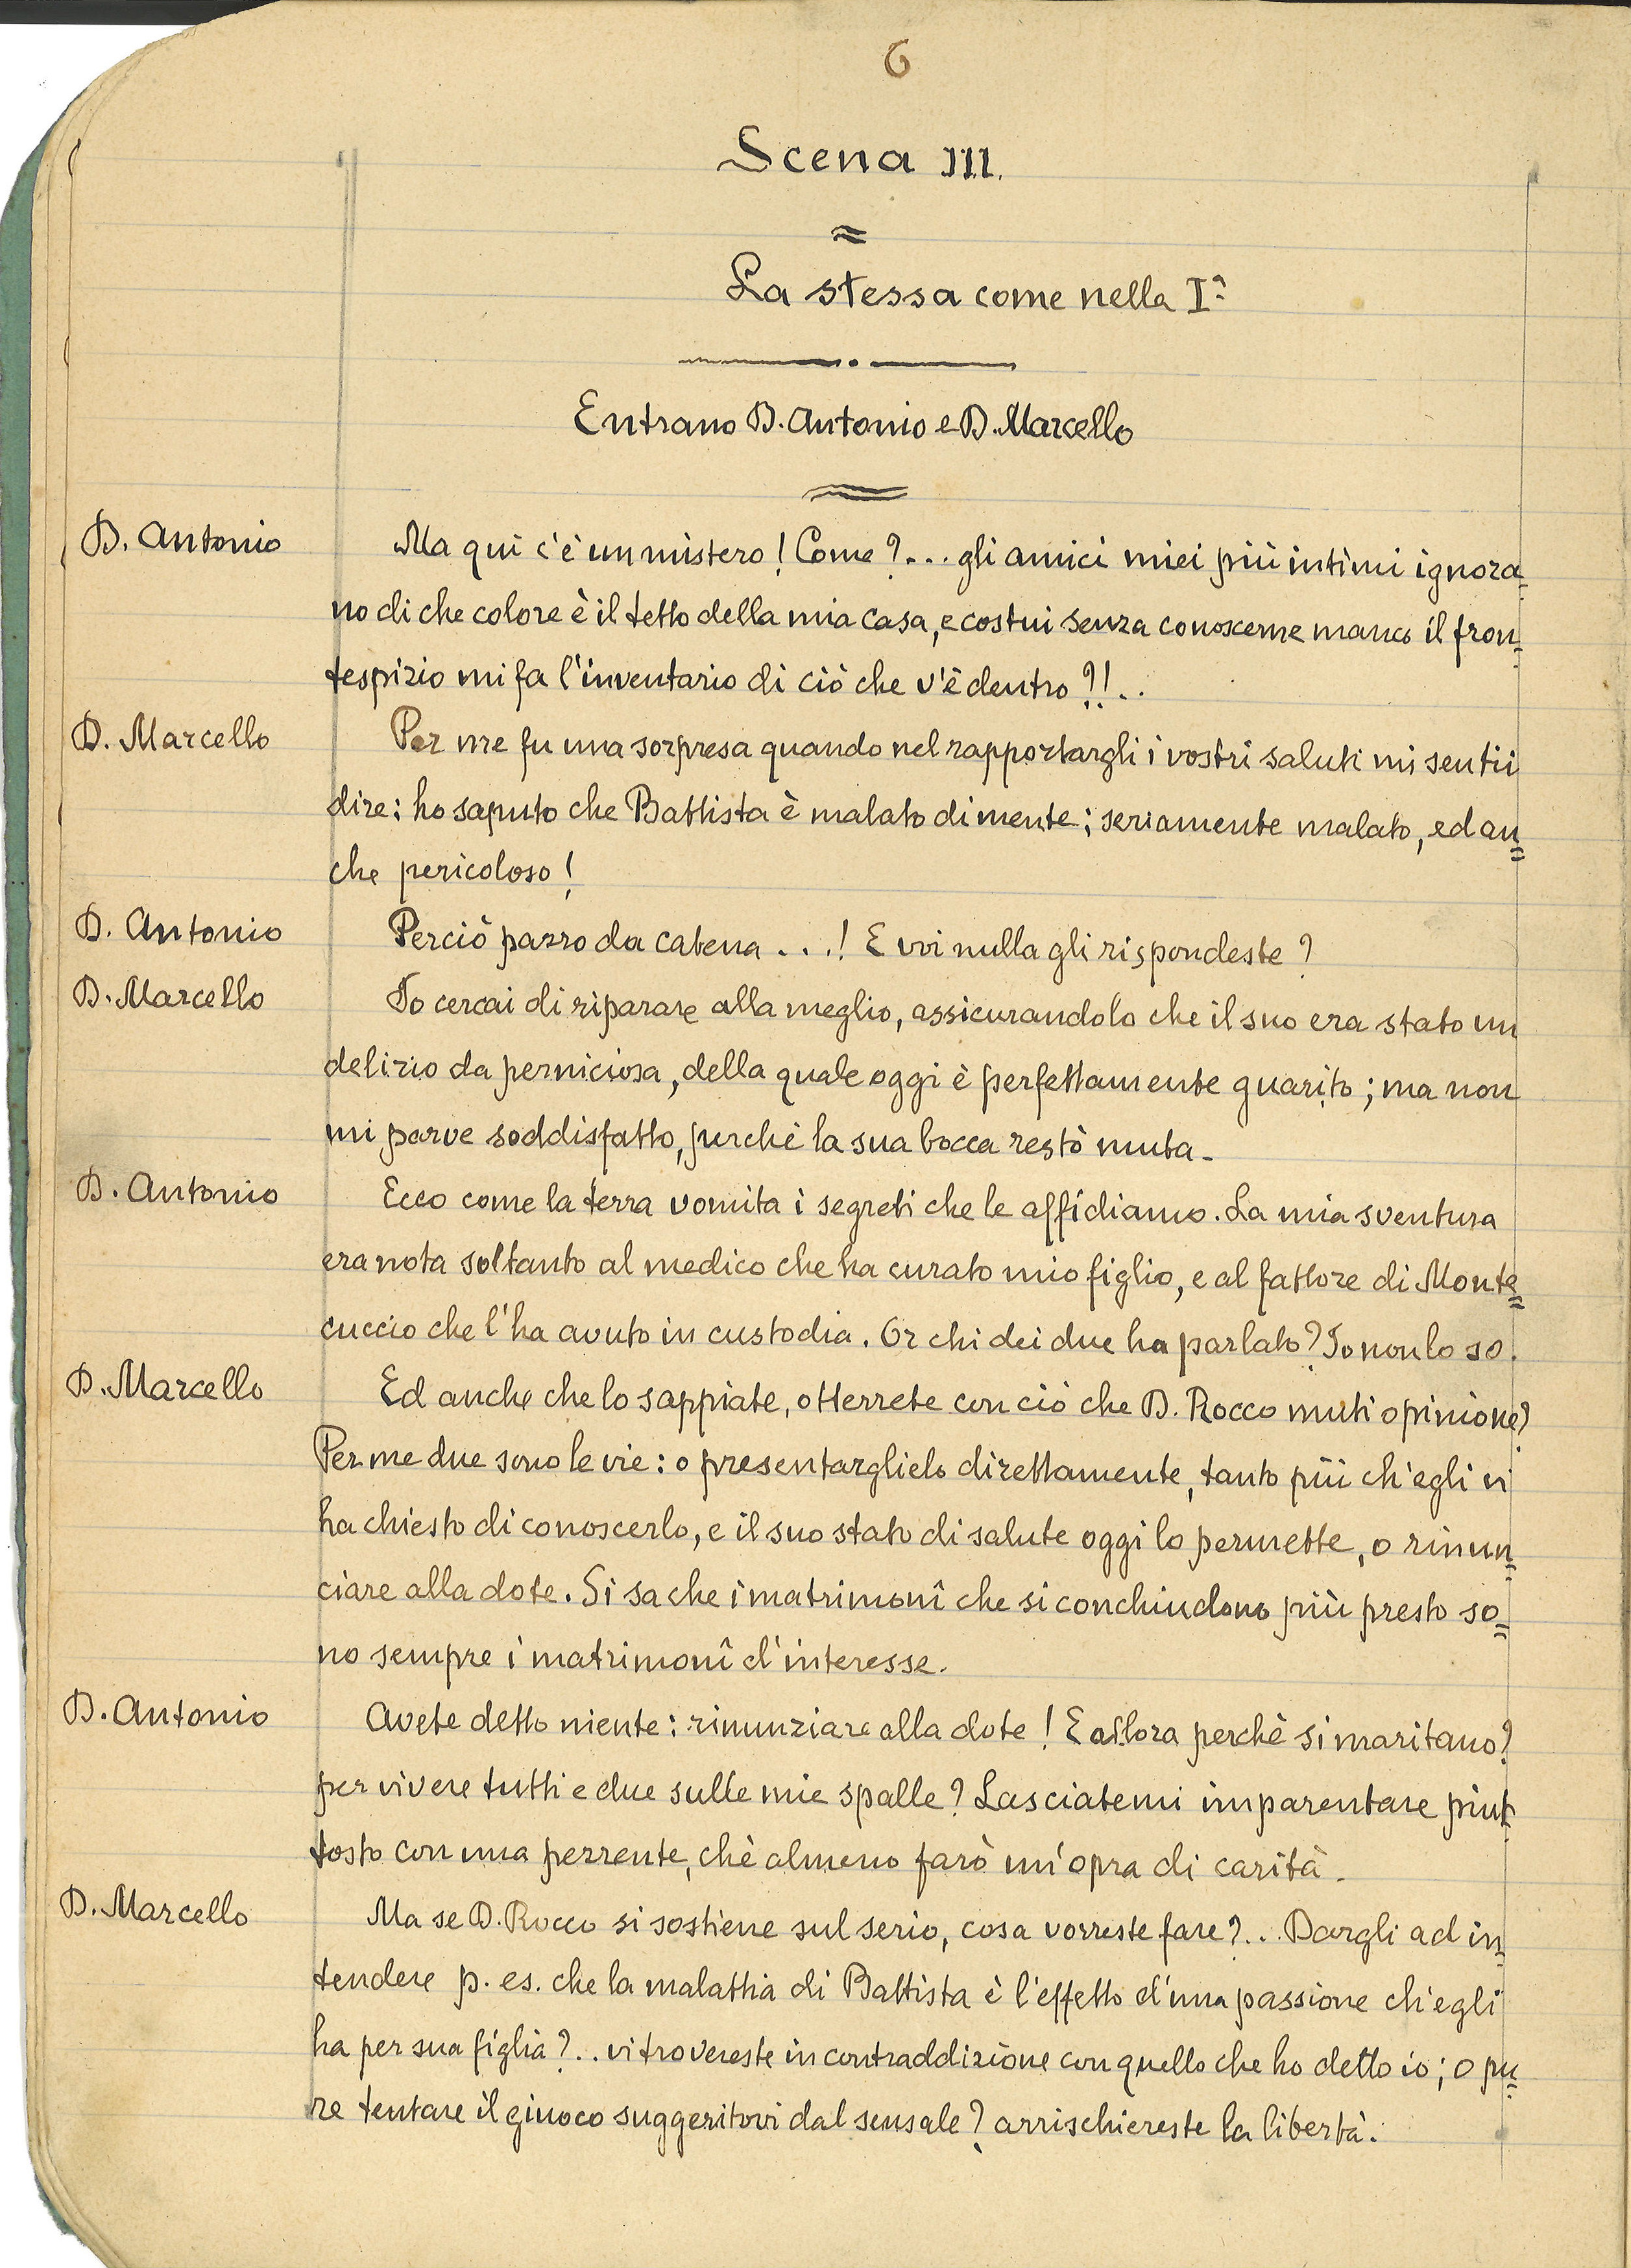 6
Scena III.
La stessa come nella Iª
Entrano D. Antonio e D. Marcello
D. Antonio Ma qui c'è un mistero! Come?... gli amici miei più intimi ignora=
no di che colore è il tetto della mia casa, e costui senza conoscerne manco il fron=
tespizio mi fa l'inventario di ciò che v'è dentro?!..
D. Marcello Per me fu una sorpresa quando nel rapportargli i vostri saluti mi sentii
dire: ho saputo che Battista è malato di mente; seriamente malato, ed an=
che pericoloso!
D. Antonio Perciò pazzo da catena...! E voi nulla gli rispondeste?
D. Marcello Io cercai di riparare alla meglio, assicurandolo che il suo era stato un
delirio da perniciosa, della quale oggi è perfettamente guarito; ma non
mi parve soddisfatto, perchè la sua bocca restò muta.
D. Antonio Ecco come la terra vomita i segreti che le affidiamo. La mia sventura
era nota soltanto al medico che ha curato mio figlio, e al fattore di Monte=
cuccio che l'ha avuto in custodia. Or chi dei due ha parlato? Io non lo so.
D. Marcello Ed anche che lo sappiate, otterrete con ciò che D. Rocco muti opinione?
Per me due sono le vie: o presentarglielo direttamente, tanto più ch'egli vi
ha chiesto di conoscerlo, e il suo stato di salute oggi lo permette, o rinun=
ciare alla dote. Si sa che i matrimonî che si conchiudono più presto so=
no sempre i matrimonî d'interesse.
D. Antonio Avete detto niente: rinunziare alla dote! E allora perchè si maritano?
per vivere tutti e due sulle mie spalle? Lasciatemi imparentare piut=
tosto con una pezzente, chè almeno farò un'opra di carità.
D. Marcello Ma se D. Rocco si sostiene sul serio, cosa vorreste fare?.. Dargli ad in=
tendere p. es. che la malattia di Battista è l'effetto d'una passione ch'egli
ha per sua figlia?.. vi trovereste in contraddizione con quello che ho detto io; o pu=
re tentare il giuoco suggeritovi dal sensale? arrischiereste la libertà.